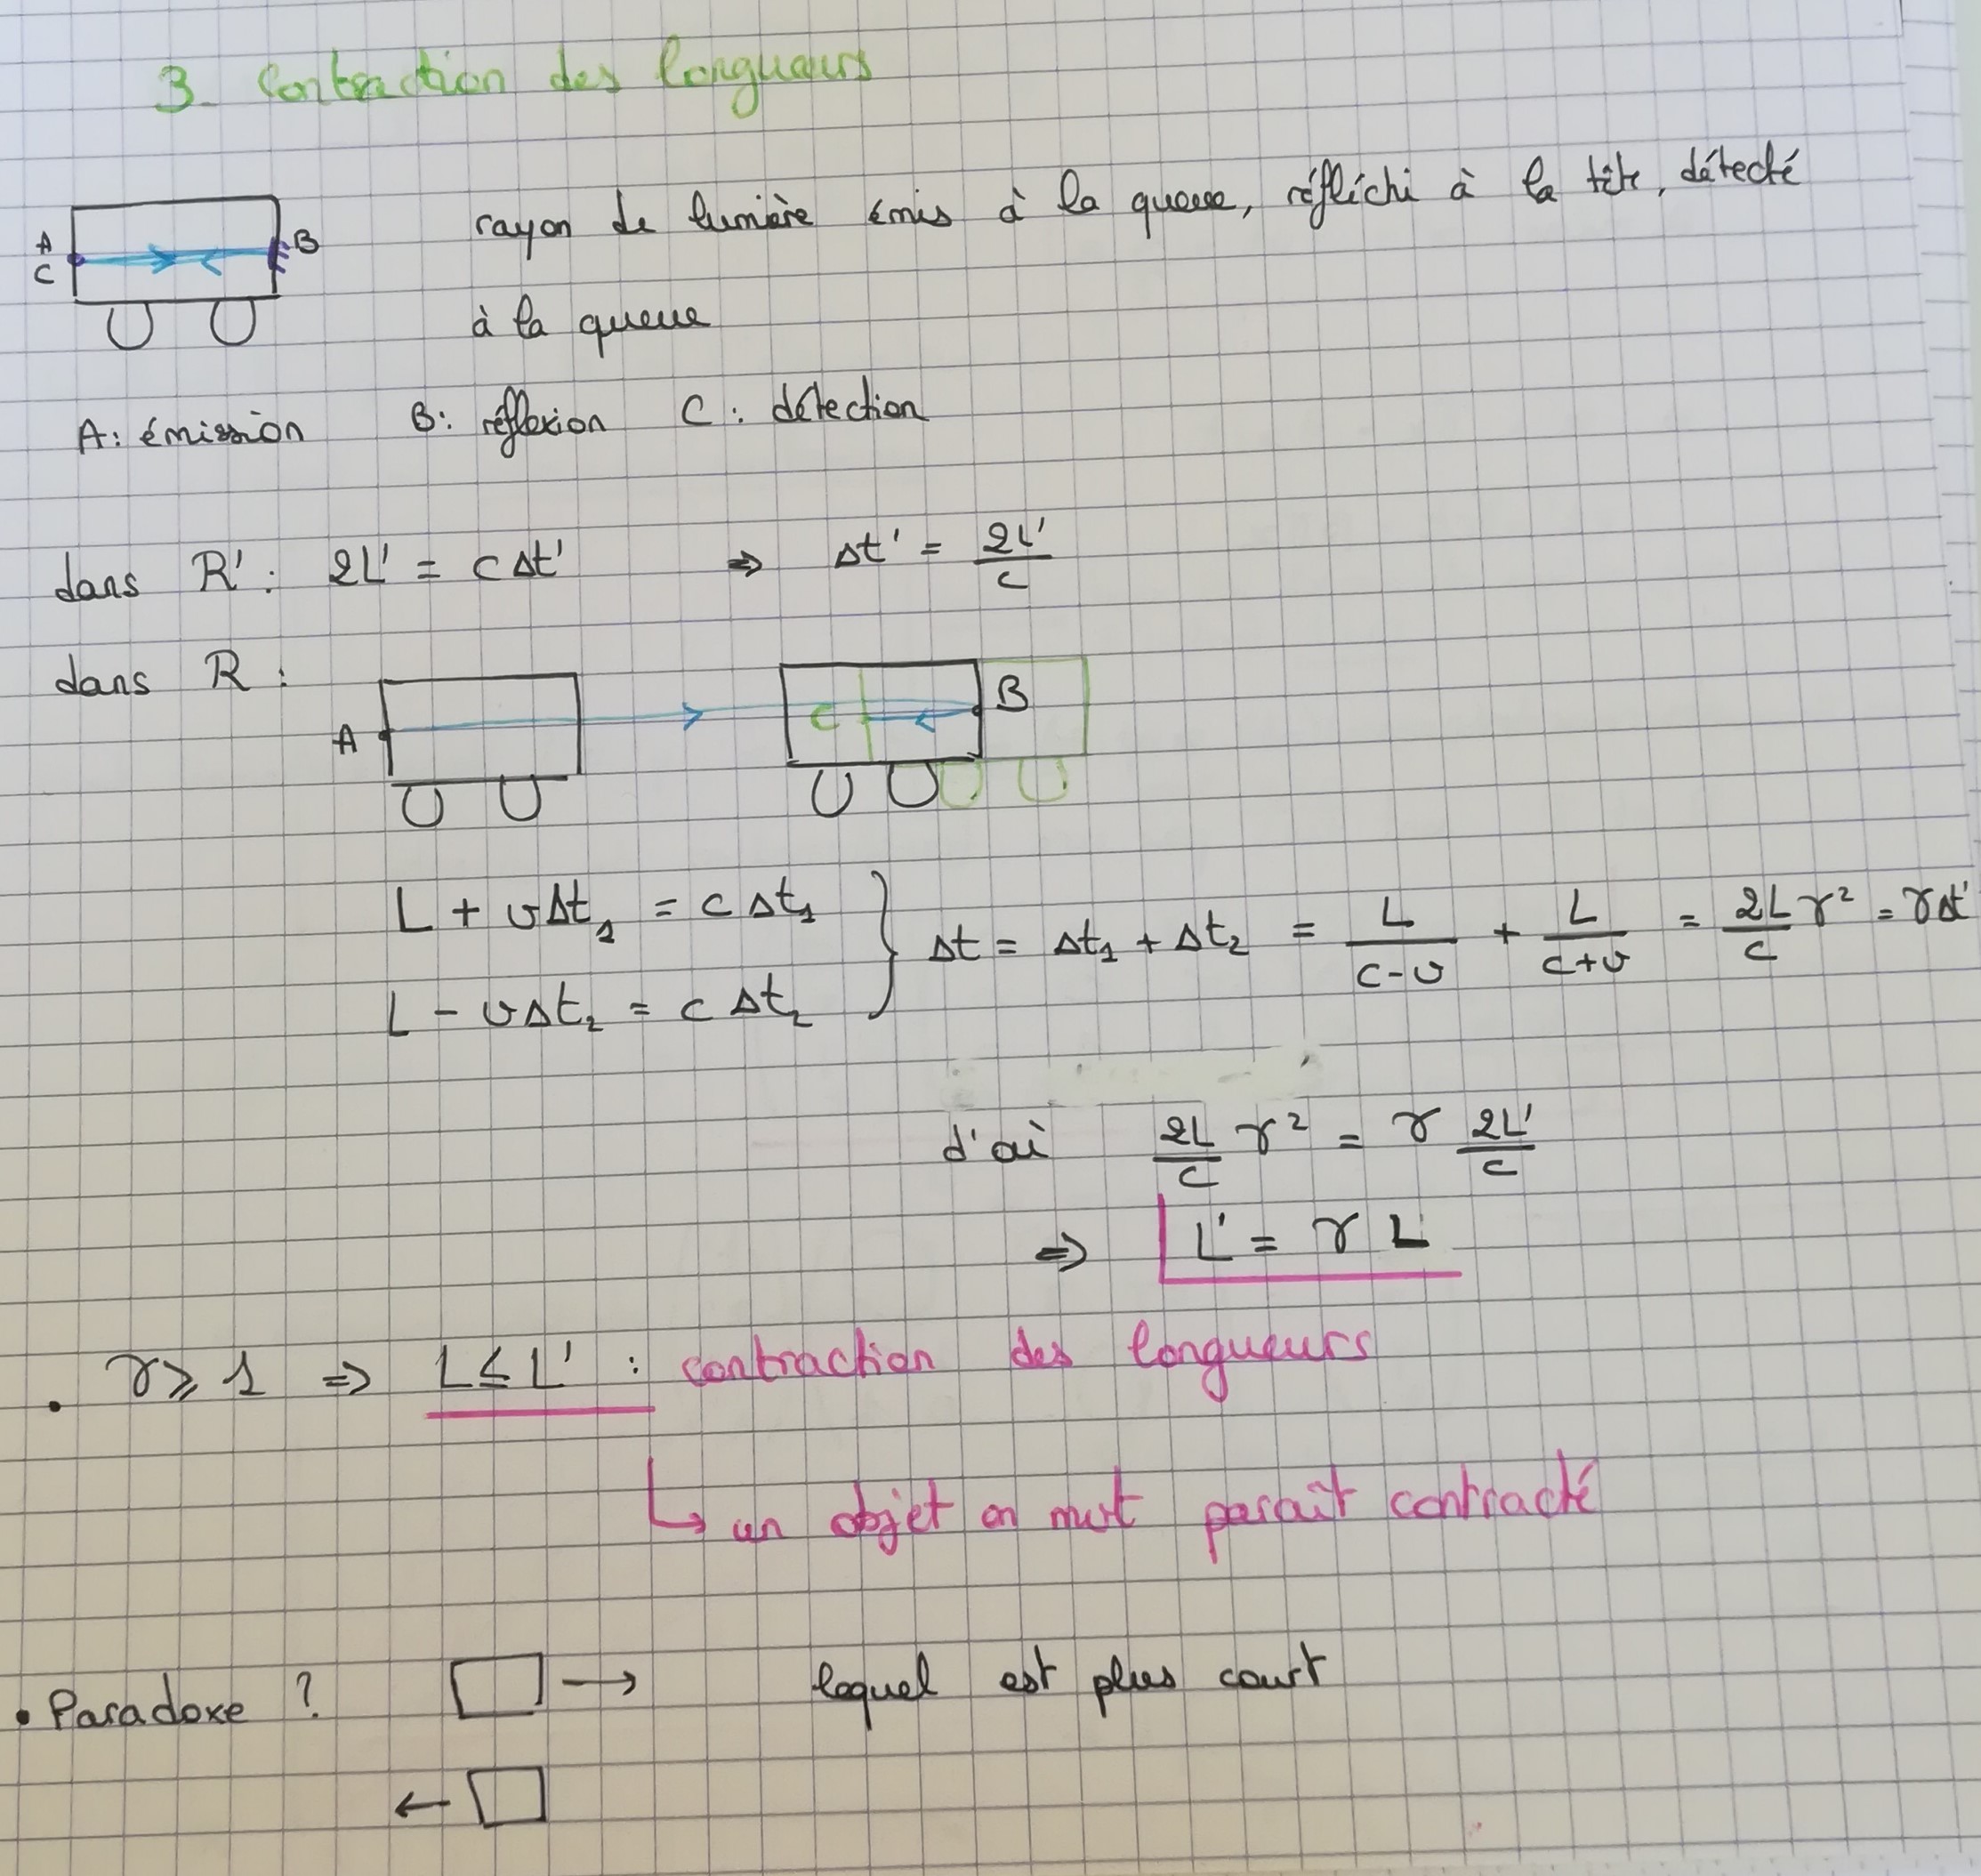 3- Contraction des longueurs
rayon de lumière émis à la queue, réfléchi à la tête, détecté
A
C
B
à la queue
A: émission B: réflexion C: détection
dans R': 2L' = cΔt' ⇒ Δt' = 2L'/c
dans R:
A
C
B
L + vΔt₁ = cΔt₁
L - vΔt₂ = cΔt₂
} Δt = Δt₁ + Δt₂ = L/(c-v) + L/(c+v) = 2L/c γ² = γΔt'
d'où 2L/c γ² = γ 2L'/c
⇒ L' = γ L
• γ ⩾ 1 ⇒ L ≤ L' : contraction des longueurs
↳ un objet en mvt parait contracté
• Paradoxe ? → lequel est plus court
←